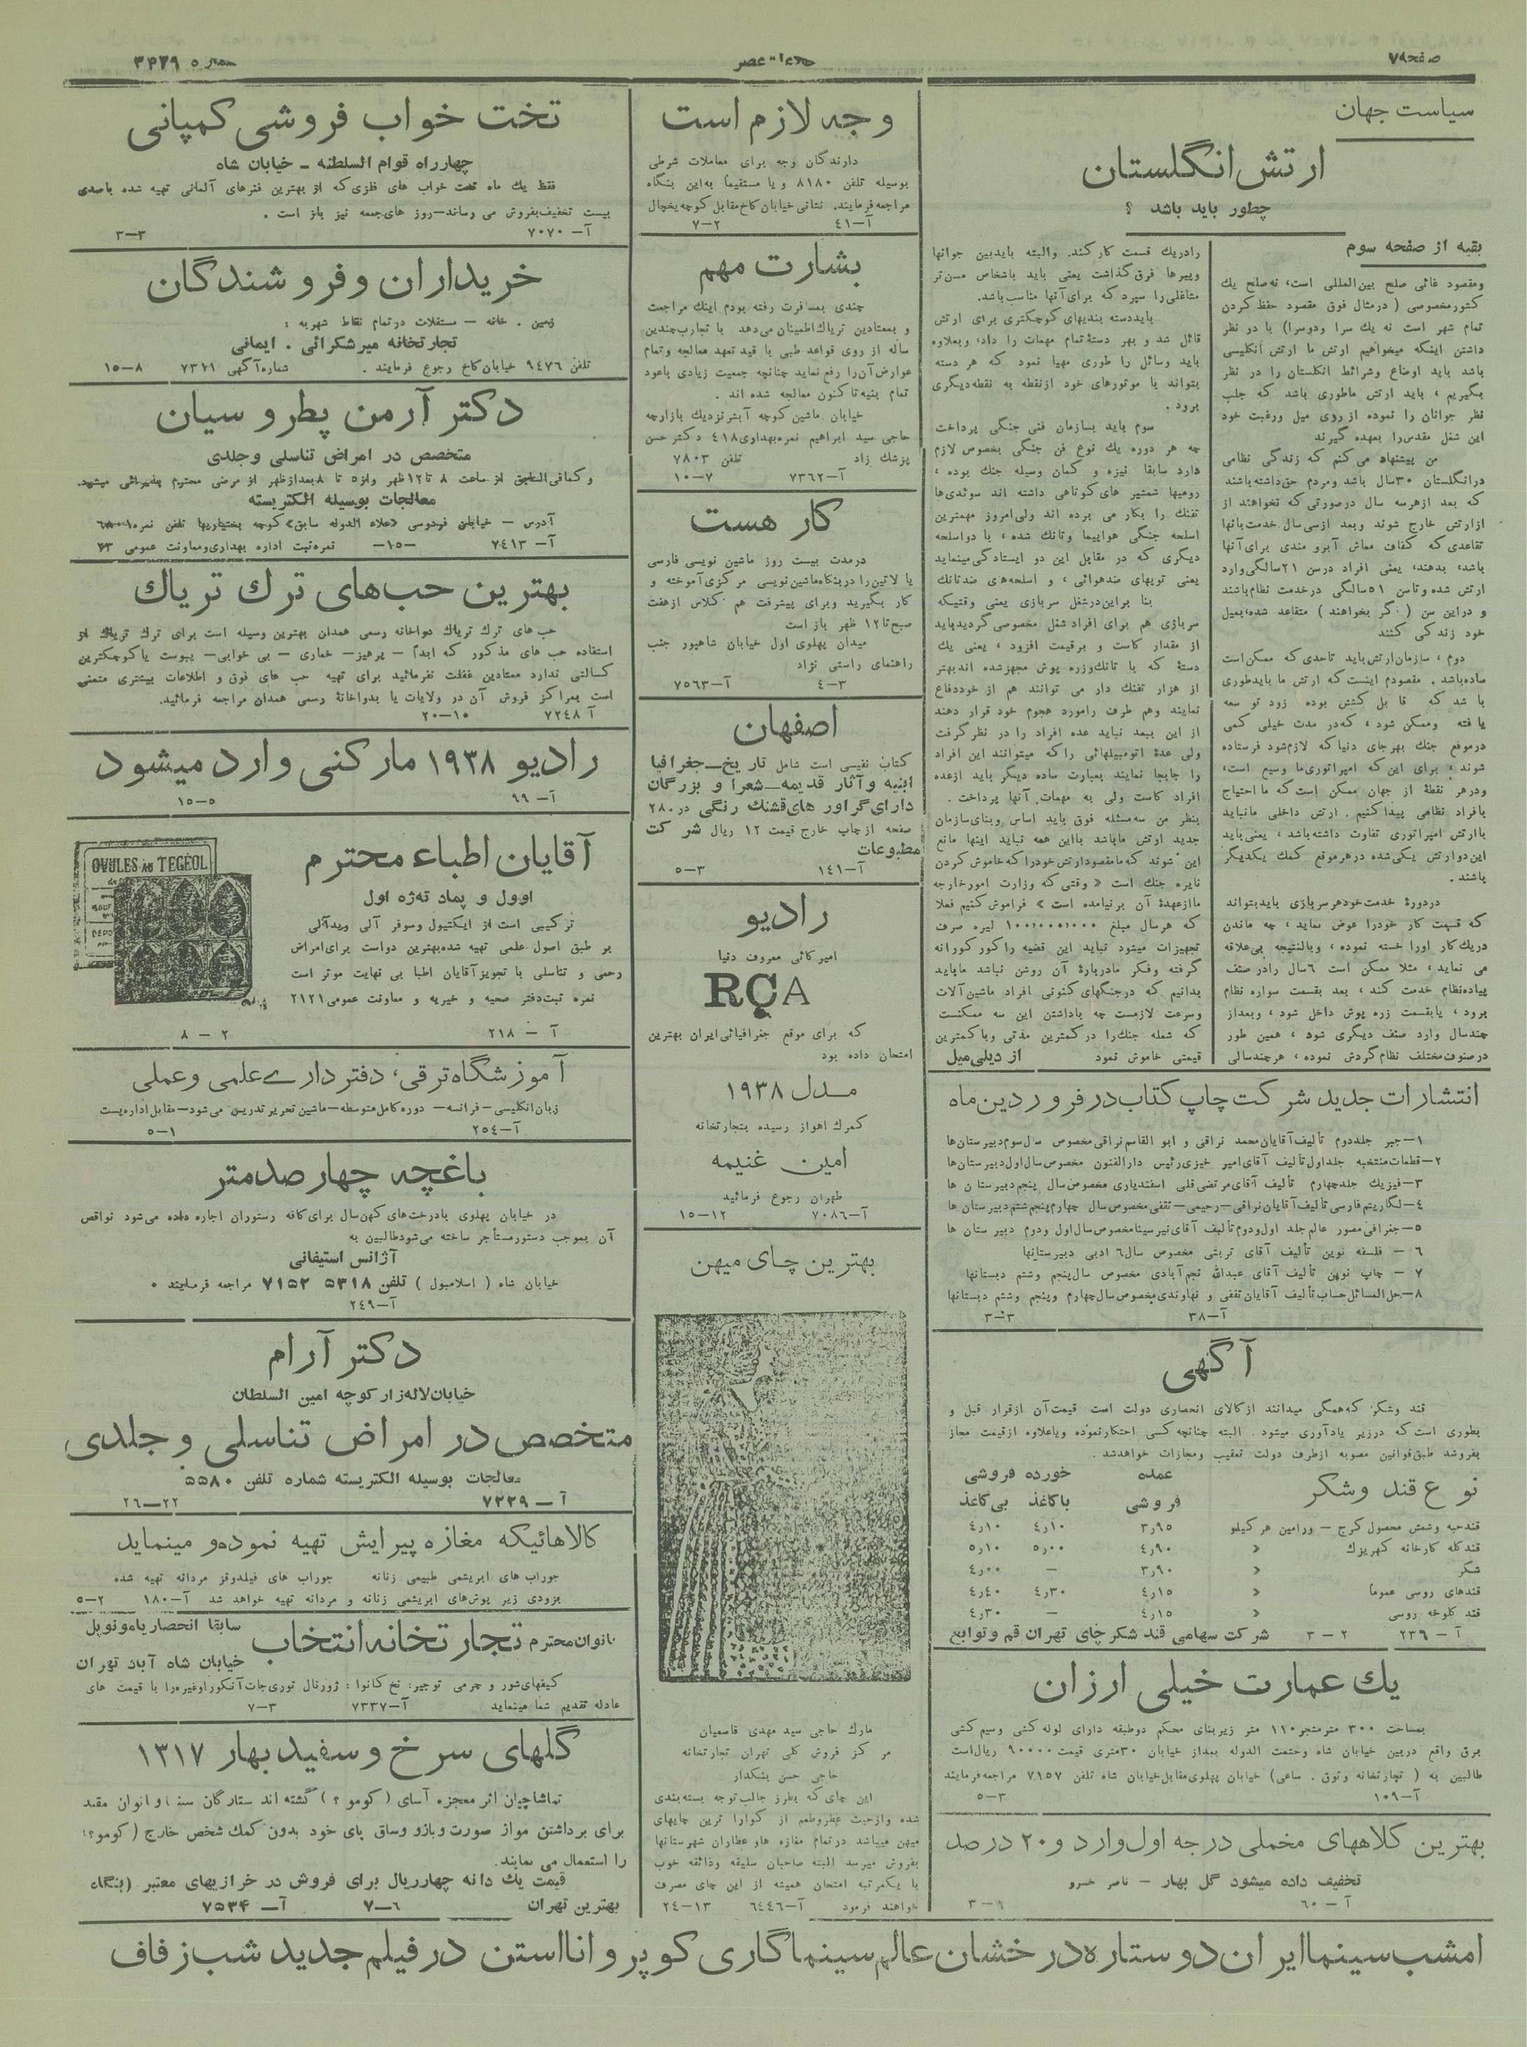 صفحه ۷
شماره ۳۴۲۹
سیاست جهان
ارتش انگلستان
چطور باید باشد ؟
بقیه از صفحه سوم
ومقصود غائی صلح بین‌المللی است، نه‌صلح یك
کشور مخصوصی ( درمثال فوق مقصود حفظ کردن
تمام شهر است نه یك سرا ودوسرا) با در نظر
داشتن اینکه میخواهیم ارتش ما ارتش انگلیسی
باشد باید اوضاع وشرائط انگلستان را در نظر
بگیریم ، باید ارتش ماطوری باشد که جلب
نظر جوانان را نموده از روی میل ورغبت خود
این شغل مقدس را بعهده گیرند
من پیشنهاد می کنم که زندگی نظامی
درانگلستان ۳۰ سال باشد ومردم حق‌داشته باشند
که بعد ازهرسه سال درصورتی که نخواهند از
ازارتش خارج شوند وبعد ازسی‌سال خدمت بآنها
تقاعدی که کفاف معاش آبرو مندی برای آنها
باشد، بدهند، یعنی افراد درسن ۲۱ سالگی وارد
ارتش شده وتاسن ۵۱ سالگی درخدمت نظام باشند
و دراین سن ( گر بخواهند ) متقاعد شده، بمیل
خود زندگی کنند
دوم ، سازمان ارتش باید تاحدی که ممکن است
ساده باشد . مقصودم اینست که ارتش ما باید طوری
باشد که قابل کشش بوده زود تو سعه
یافته وممکن شود ، که در مدت خیلی کمی
درموقع جنك بهر جای دنیا که لازم شود فرستاده
شوند ، برای این که امپراتوری‌ما وسیع است ،
ودرهر نقطهٔ از جهان ممکن است که ما احتیاج
بافراد نظامی پیدا کنیم . ارتش داخلی ما نباید
باارتش امپراتوری تفاوت داشته باشد ، یعنی باید
این دو ارتش یکی شده درهر موقع کمك یکدیگر
باشند .
دردورهٔ خدمت خود هر سربازی باید بتواند
که قسمت کار خود را عوض نماید ، چه ماندن
دریك کار اورا خسته نموده ، وبالنتیجه بی‌علاقه
می نماید ، مثلا ممکن است ۶ سال رادر صنف
پیاده نظام خدمت کند ، بعد بقسمت سواره نظام
برود ، یا بقسمت زره پوش داخل شود ، وبعد از
چندسال وارد صنف دیگری شود ، همین طور
درصنوف مختلف نظام گردش نموده ، هر چند سالی
رادریك قسمت کار کند. والبته باید بین جوانها
وپیرها فرق گذاشت یعنی باید باشخاص مسن تر
مشاغلی را سپرد که برای آنها مناسب باشد.
باید دسته بندیهای کوچکتری برای ارتش
قائل شد و بهر دستهٔ تمام مهمات را داد، وبعلاوه
باید وسائل را طوری مهیا نمود که هر دسته
بتواند با موتورهای خود ازنقطه به نقطه دیگری
برود .
سوم باید بسازمان فنی جنگی پرداخت
چه هر دوره یك نوع فن جنگی بخصوص لازم
دارد سابقا نیزه و کمان وسیله جنك بوده ،
رومیها شمشیر های کوتاهی داشته اند سوئدی‌ها
تفنك را بکار می برده اند ولی امروز مهمترین
اسلحه جنگی هواپیما وتانك شده ، با دو اسلحه
دیگری که در مقابل این دو ایستادگی مینماید
یعنی توپهای ضدهوائی ، و اسلحه‌های ضدتانك
بنا براین در شغل سربازی یعنی وقتیکه
سربازی هم برای افراد شغل مخصوصی گردید باید
از مقدار کاست و برقیمت افزود ، یعنی یك
دستهٔ که با تانك وزره پوش مجهز شده اند بهتر
از هزار تفنك دار می توانند هم از خود دفاع
نمایند وهم طرف رامورد هجوم خود قرار دهند
از این ببعد نباید عده افراد را در نظر گرفت
ولی عدهٔ اتومبیلهائی راکه میتوانند این افراد
را جابجا نمایند بعبارت ساده دیگر باید ازعده
افراد کاست ولی به مهمات آنها پرداخت .
بنظر من سه مسئله فوق باید اساس وبنای سازمان
جدید ارتش ما باشد با این همه نباید اینها مانع
این شوند که ما مقصود ارتش خود را که خاموش کردن
نایره جنك است « وقتی که وزارت امور خارجه
ما از عهدهٔ آن برنیامده است » فراموش کنیم فعلا
که هرسال مبلغ ۱۰۰٬۰۰۰٬۰۰۰ لیره صرف
تجهیزات میشود نباید این قضیه را کور کورانه
گرفته وفکر ما دربارهٔ آن روشن نباشد ما باید
بدانیم که در جنگهای کنونی افراد ماشین آلات
وسرعت لازمست چه با داشتن این سه ممکنست
که شعله جنك را در کمترین مدتی و با کمترین
قیمتی خاموش نمود
از دیلی میل
انتشارات جدید شرکت چاپ کتاب در فروردین ماه
۱–جبر جلد دوم تألیف آقایان محمد نراقی و ابو القاسم نراقی مخصوص سال سوم دبیرستان‌ها
۲–قطعات منتخبه جلد اول تألیف آقای امیر خیزی رئیس دارالفنون مخصوص سال اول دبیرستان‌ها
۳–فیزیك جلد چهارم تألیف آقای مرتضی قلی اسفندیاری مخصوص سال پنجم دبیرستان ها
۴–لگاریتم فارسی تألیف آقایان نراقی–رحیمی–ثقفی مخصوص سال چهارم پنجم ششم دبیرستان ها
۵–جغرافی مصور عالم جلد اول ودوم تألیف آقای نیرسینا مخصوص سال اول ودوم دبیرستان ها
۶ – فلسفه نوین تألیف آقای تربتی مخصوص سال ۶ ادبی دبیرستانها
۷ – چاپ نوین تألیف آقای عبدالله نجم آبادی مخصوص سال پنجم وششم دبستانها
۸–حل المسائل حساب تألیف آقایان ثقفی و نهاوندی مخصوص سال چهارم وپنجم وششم دبستانها
آ–۳۸
۳–۳
آگهی
قند وشکر که همگی میدانند از کالای انحصاری دولت است قیمت آن از قرار قبل و
بطوری است که درزیر یادآوری میشود . البته چنانچه کسی احتکار نموده ویا علاوه از قیمت مجاز
بفروشد طبق قوانین مصوبه از طرف دولت تعقیب ومجازات خواهد شد .
نوع قند وشکر
عمده فروشی
خورده فروشی
باکاغذ
بی کاغذ
قند حبه وشش محصول کرج – ورامین هر کیلو ۳٫۹۵ ۴٫۱۰ ۴٫۱۰
قند کله کارخانه کهریزك « ۴٫۹۰ ۵٫۰۰ ۵٫۱۰
شکر « ۳٫۹۰ – ۴٫۰۰
قندهای روسی عموماً « ۴٫۱۵ ۴٫۳۰ ۴٫۴۰
قند کلوخه روسی « ۴٫۱۵ – ۴٫۳۰
آ – ۲۳۶
۲ – ۳
شرکت سهامی قند شکر چای تهران قم و توابع
یك عمارت خیلی ارزان
بمساحت ۳۰۰ متر متجر ۱۱۰ متر زیربنای محکم دوطبقه دارای لوله کشی وسیم کشی
برق واقع دربین خیابان شاه وحشمت الدوله بعد از خیابان ۳۰ متری قیمت ۹۰۰۰۰ ریال است
طالبین به ( تجارتخانه وثوق . ساعی) خیابان پهلوی مقابل خیابان شاه تلفن ۷۱۵۷ مراجعه فرمایند
آ–۱۰۹
۳–۵
بهترین کلاههای مخملی درجه اول وارد و ۲۰ درصد
تخفیف داده میشود گل بهار – ناصر خسرو
آ – ۶۰
وجه لازم است
دارندگان وجه برای معاملات شرطی
بوسیله تلفن ۸۱۸۰ ویا مستقیماً به این بنگاه
مراجعه فرمایند. نشانی خیابان کاخ مقابل کوچه یخچال
آ–۴۱
۲–۷
بشارت مهم
چندی بمسافرت رفته بودم اینك مراجعت
و بمعتادین تریاك اطمینان می‌دهد با تجارب چندین
ساله از روی قواعد طبی با قید تعهد معالجه وتمام
عوارض آن را رفع نماید چنانچه جمعیت زیادی باعود
تمام بنیه تا کنون معالجه شده اند .
خیابان ماشین کوچه آبشر نزدیك بازارچه
حاجی سید ابراهیم نمره بهداری ۴۱۸ دکتر حسن
پزشك زاد تلفن ۷۸۰۳
آ–۷۳۶۲
۷–۱۰
کار هست
درمدت بیست روز ماشین نویسی فارسی
یا لاتین را در بنگاه ماشین نویسی مرکزی آموخته و
کار بگیرید وبرای پیشرفت هم کلاس از هفت
صبح تا ۱۲ ظهر باز است
میدان پهلوی اول خیابان شاهپور جنب
راهنمای راستی نژاد
۳–۴
آ–۷۵۶۳
اصفهان
کتاب نفیسی است شامل تاریخ–جغرافیا
ابنیه وآثار قدیمه–شعرا و بزرگان
دارای گراور های قشنك رنگی در ۲۸۰
صفحه از چاپ خارج قیمت ۱۲ ریال شرکت
مطبوعات
آ–۱۴۱
۳–۵
رادیو
امیرکائی معروف دنیا
RCA
که برای موقع جغرافیائی ایران بهترین
امتحان داده بود
مدل ۱۹۳۸
گمرك اهواز رسیده بتجارتخانه
امین غنیمه
طهران رجوع فرمائید
آ–۷۰۸۶
۱۲–۱۵
بهترین چای میهن
مارك حاجی سید مهدی قاسمیان
مرکز فروش کلی تهران تجارتخانه
حاجی حسن بشکدار
این چای که بطرز جالب توجه بسته بندی
شده وازحیث عطر وطعم از گوارا ترین چایهای
میهن میباشد در تمام مغازه ها و عطاران شهرستانها
بفروش میرسد البته صاحبان سلیقه وذائقه خوب
با یکمرتبه امتحان همیشه از این چای مصرف
خواهند فرمود
آ–۶۴۴۶
۱۳–۲۴
تخت خواب فروشی کمپانی
چهارراه قوام السلطنه – خیابان شاه
فقط یك ماه تخت خواب های فلزی که از بهترین فنرهای آلمانی تهیه شده باصدی
بیست تخفیف بفروش می رساند–روز های جمعه نیز باز است .
آ– ۷۰۷۰
۳–۳
خریداران وفروشندگان
زمین . خانه – مستغلات درتمام نقاط شهربه :
تجارتخانه میرشکرائی . ایمانی
تلفن ۹۴۷۶ خیابان کاخ رجوع فرمایند .
شماره آگهی ۷۳۲۱
۸–۱۵
دکتر آرمن پطروسیان
متخصص در امراض تناسلی وجلدی
وکمافی‌السابق از ساعت ۸ تا ۱۲ ظهر واز ۵ تا ۸ بعد از ظهر از مرضی محترم پذیرائی میشود.
معالجات بوسیله الکتریسته
آدرس – خیابان فردوسی «علاء الدوله سابق» کوچه بختیاریها تلفن نمره
آ– ۷۴۱۳
–۱۵–
نمره ثبت اداره بهداری ومعاونت عمومی ۴۳
بهترین حب‌های ترك تریاك
حب های ترك تریاك دواخانه رسمی همدان بهترین وسیله است برای ترك تریاك از
استفاده حب های مذکور که ابداً – پرهیز – خماری – بی خوابی – یبوست یا کوچکترین
کسالتی ندارد معتادین غفلت نفرمائید برای تهیه حب های فوق و اطلاعات بیشتری متمنی
است بمراکز فروش آن در ولایات یا بدواخانهٔ رسمی همدان مراجعه فرمائید.
آ ۷۲۴۸
۱۰–۲۰
رادیو ۱۹۳۸ مارکنی وارد میشود
آ– ۹۹
۵–۱۵
آقایان اطباء محترم
اوول و پماد ته‌ژه اول
ترکیبی است از ایکتیول وسوفر آلی ویدآلی
بر طبق اصول علمی تهیه شده بهترین دواست برای امراض
رحمی و تناسلی با تجویز آقایان اطبا بی نهایت موثر است
نمره ثبت دفتر صحیه و خیریه و معاونت عمومی ۲۱۲۱
آ – ۲۱۸
۲ – ۸
OVULES AU TEGEOL
آموزشگاه ترقی، دفترداری علمی وعملی
زبان انگلیسی–فرانسه – دوره کامل متوسطه–ماشین تحریر تدریس می‌شود–مقابل اداره پست
آ–۲۵۴
۱–۵
باغچه چهارصدمتر
در خیابان پهلوی با درخت‌های کهن سال برای کافه رستوران اجاره داده می‌شود نواقص
آن بموجب دستور مستأجر ساخته می‌شود طالبین به
آژانس استیفانی
خیابان شاه ( اسلامبول ) تلفن ۵۳۱۸ ۷۱۵۲ مراجعه فرمایند .
آ–۲۴۹
دکتر آرام
خیابان لاله‌زار کوچه امین السلطان
متخصص در امراض تناسلی وجلدی
معالجات بوسیله الکتریسته شماره تلفن ۵۵۸۰
آ – ۷۲۲۹
۲۲–۲۶
کالاهائیکه مغازه پیرایش تهیه نموده و مینماید
جوراب های ابریشمی طبیعی زنانه
جوراب های فیلدوقز مردانه تهیه شده
بزودی زیر پوش‌های ابریشمی زنانه و مردانه تهیه خواهد شد آ–۱۸۰
۲–۵
بانوان محترم تجارتخانه انتخاب
سابقا انحصار یا مونوپل
خیابان شاه آباد تهران
کیفهای شور و چرمی توجیر: نخ کانوا : ژورنال توری‌جات آنکور اوغیره را با قیمت های
عادله تقدیم شما مینماید
آ–۷۳۳۷
۳–۷
گلهای سرخ وسفید بهار ۱۳۱۷
تماشاچیان اثر معجزه آسای (کومو ؟) گشته اند ستارگان سنما و انوان مقید
برای برداشتن مواز صورت وبازو وساق پای خود بدون کمك شخص خارج (کومو؟)
را استعمال می نمایند.
قیمت یك دانه چهارریال برای فروش در خرازیهای معتبر (بنگاه
بهترین تهران
۶–۷
آ– ۷۵۳۴
امشب سینما ایران دوستاره درخشان عالم سینما گاری کوپر و انا استن در فیلم جدید شب زفاف